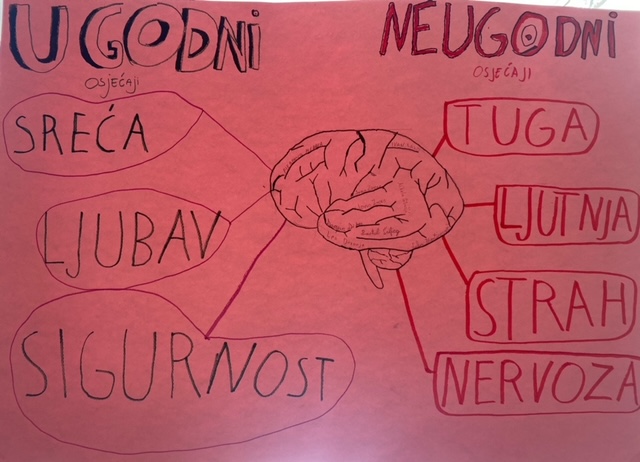 UGODNI
OSJEĆAJI
SREĆA
LJUBAV
SIGURNOST
NEUGODNI
OSJEĆAJI
TUGA
LJUTNJA
STRAH
NERVOZA